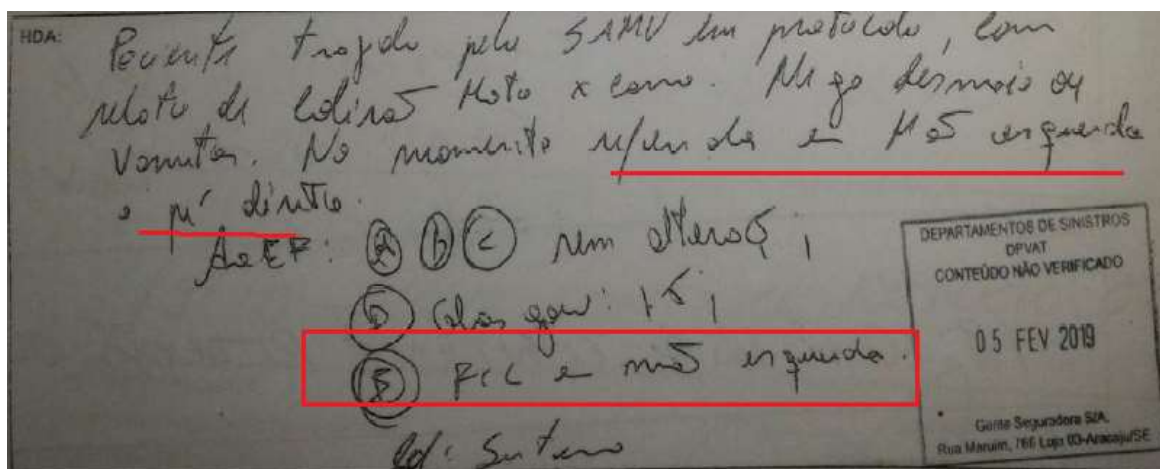 HDA:
Paciente trazido pelo SAMU em protocolo, com
relato de colisão Moto x carro. Nega desmaio ou
vomitos. No momento refere dor em Mão esquerda
e pé direito.
Ao EF: (A) (B) (C) sem alteração,
(D) Glasgow: 15,
(E) FCC em mão esquerda.
Cd: Sutura
DEPARTAMENTOS DE SINISTROS
DPVAT
CONTEÚDO NÃO VERIFICADO
05 FEV 2019
Gente Seguradora S/A.
Rua Maruim, 766 Loja 03-Aracaju/SE